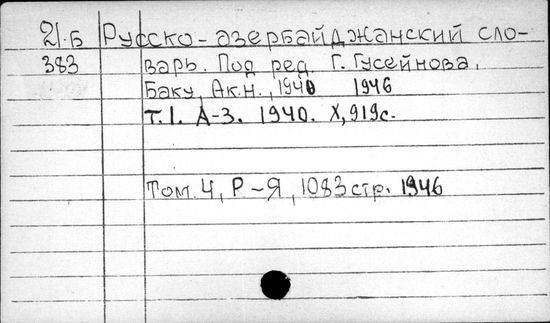 21.Б Русско-азербайджанский сло-
383 варь. Под ред Г. Гусейнова.
Баку, Ак.н., 1940 1946
т.1. А-З. 1940. X, 919с.
Том. 4, Р-Я, 1083 стр. 1946